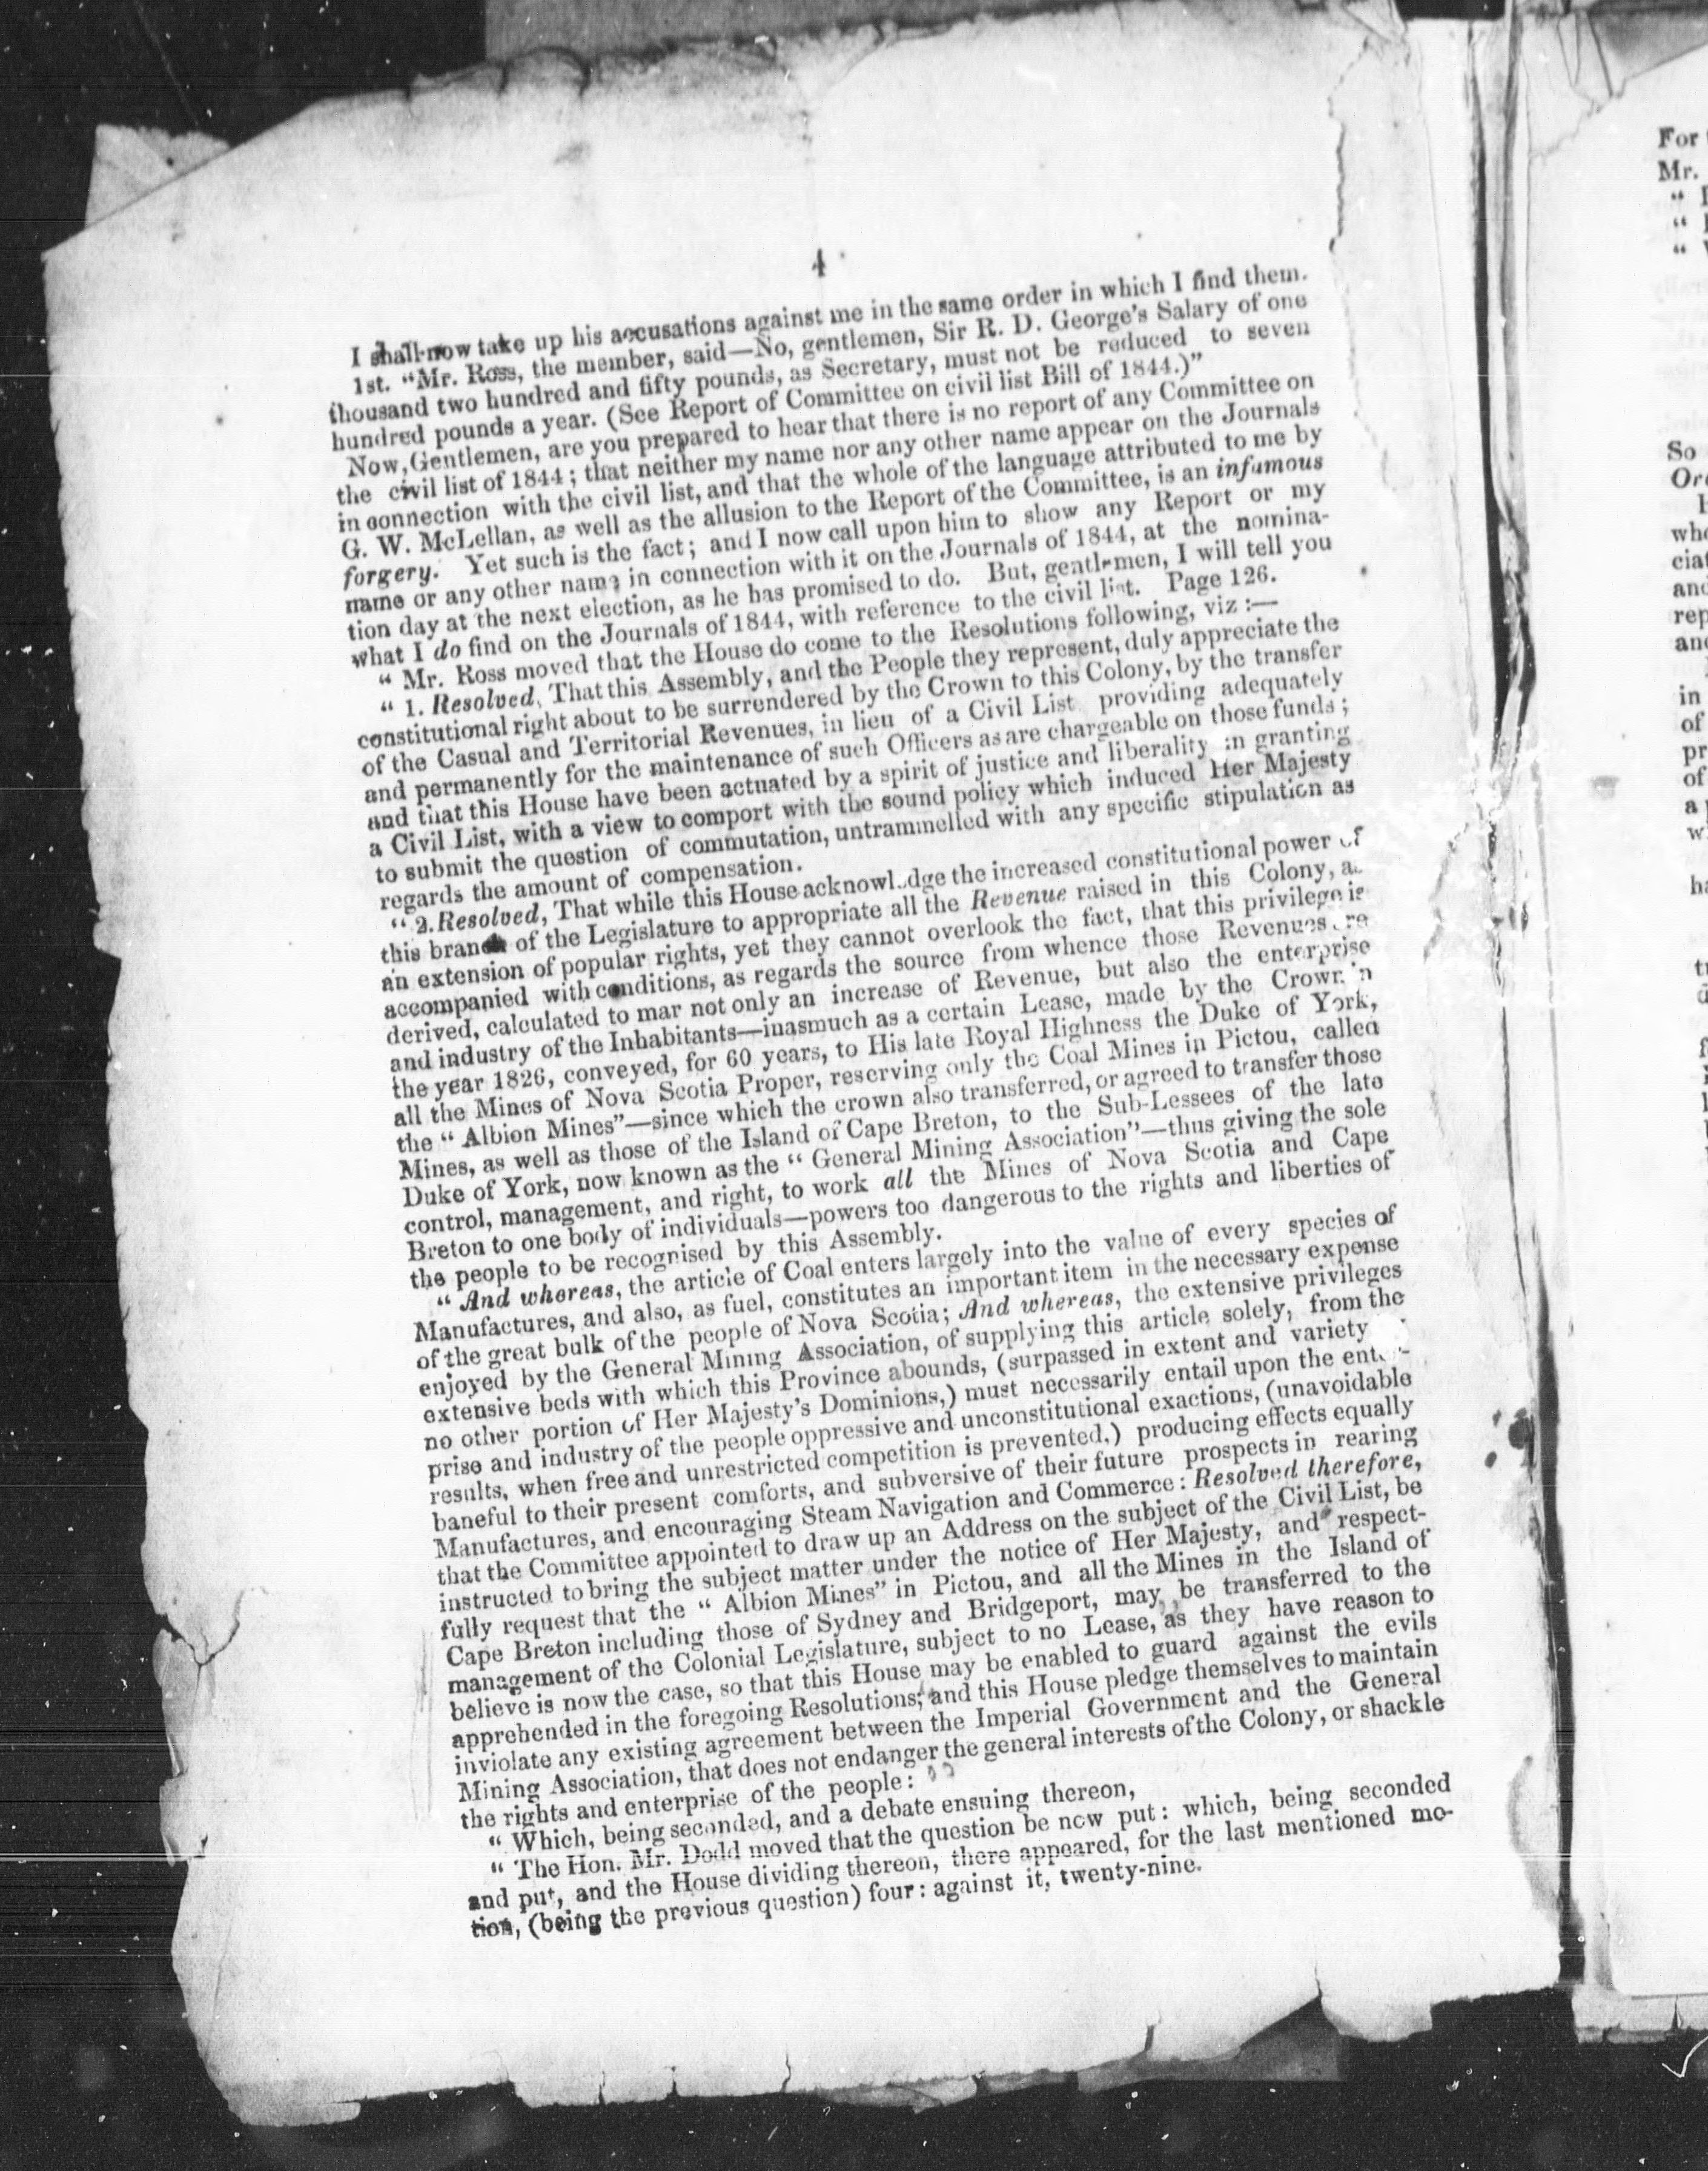 4
I shall now take up his accusations against me in the same order in which I find them.
1st. "Mr. Ross, the member, said—No, gentlemen, Sir R. D. George's Salary of one
thousand two hundred and fifty pounds, as Secretary, must not be reduced to seven
hundred pounds a year. (See Report of Committee on civil list Bill of 1844.)"
Now, Gentlemen, are you prepared to hear that there is no report of any Committee on
the civil list of 1844; that neither my name nor any other name appear on the Journals
in connection with the civil list, and that the whole of the language attributed to me by
G. W. McLellan, as well as the allusion to the Report of the Committee, is an infamous
forgery. Yet such is the fact; and I now call upon him to show any Report or my
name or any other name in connection with it on the Journals of 1844, at the nomina-
tion day at the next election, as he has promised to do. But, gentlemen, I will tell you
what I do find on the Journals of 1844, with reference to the civil list. Page 126.
" Mr. Ross moved that the House do come to the Resolutions following, viz:—
" 1. Resolved, That this Assembly, and the People they represent, duly appreciate the
constitutional right about to be surrendered by the Crown to this Colony, by the transfer
of the Casual and Territorial Revenues, in lieu of a Civil List providing adequately
and permanently for the maintenance of such Officers as are chargeable on those funds;
and that this House have been actuated by a spirit of justice and liberality in granting
a Civil List, with a view to comport with the sound policy which induced Her Majesty
to submit the question of commutation, untrammelled with any specific stipulation as
regards the amount of compensation.
" 2. Resolved, That while this House acknowledge the increased constitutional power of
this branch of the Legislature to appropriate all the Revenue raised in this Colony, as
an extension of popular rights, yet they cannot overlook the fact, that this privilege is
accompanied with conditions, as regards the source from whence those Revenues are
derived, calculated to mar not only an increase of Revenue, but also the enterprise
and industry of the Inhabitants—inasmuch as a certain Lease, made by the Crown in
the year 1826, conveyed, for 60 years, to His late Royal Highness the Duke of York,
all the Mines of Nova Scotia Proper, reserving only the Coal Mines in Pictou, called
the " Albion Mines"—since which the crown also transferred, or agreed to transfer those
Mines, as well as those of the Island of Cape Breton, to the Sub-Lessees of the late
Duke of York, now known as the " General Mining Association"—thus giving the sole
control, management, and right, to work all the Mines of Nova Scotia and Cape
Breton to one body of individuals—powers too dangerous to the rights and liberties of
the people to be recognised by this Assembly.
" And whereas, the article of Coal enters largely into the value of every species of
Manufactures, and also, as fuel, constitutes an important item in the necessary expense
of the great bulk of the people of Nova Scotia; And whereas, the extensive privileges
enjoyed by the General Mining Association, of supplying this article solely, from the
extensive beds with which this Province abounds, (surpassed in extent and variety
no other portion of Her Majesty's Dominions,) must necessarily entail upon the enter-
prise and industry of the people oppressive and unconstitutional exactions, (unavoidable
results, when free and unrestricted competition is prevented,) producing effects equally
baneful to their present comforts, and subversive of their future prospects in rearing
Manufactures, and encouraging Steam Navigation and Commerce: Resolved therefore,
that the Committee appointed to draw up an Address on the subject of the Civil List, be
instructed to bring the subject matter under the notice of Her Majesty, and respect-
fully request that the " Albion Mines" in Pictou, and all the Mines in the Island of
Cape Breton including those of Sydney and Bridgeport, may be transferred to the
management of the Colonial Legislature, subject to no Lease, as they have reason to
believe is now the case, so that this House may be enabled to guard against the evils
apprehended in the foregoing Resolutions; and this House pledge themselves to maintain
inviolate any existing agreement between the Imperial Government and the General
Mining Association, that does not endanger the general interests of the Colony, or shackle
the rights and enterprise of the people:
" Which, being seconded, and a debate ensuing thereon,
" The Hon. Mr. Dodd moved that the question be now put: which, being seconded
and put, and the House dividing thereon, there appeared, for the last mentioned mo-
tion, (being the previous question) four: against it, twenty-nine.
For
Mr.
"
"
"
So
in
of
of
a